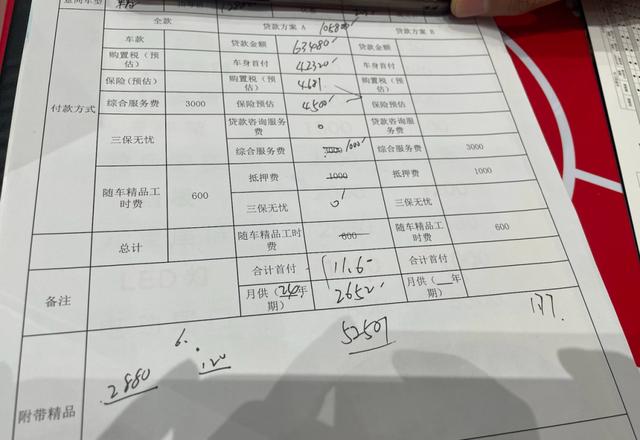 意向车型
全款 贷款方案 A 105800 贷款方案 B
付款方式
车款 贷款金额 63480 贷款金额
购置税(预估) 车身首付 42320 车身首付
保险(预估) 购置税(预估) 4681 购置税(预估)
综合服务费 3000 保险预估 4500 保险预估
三保无忧 贷款咨询服务费 0 贷款咨询服务费
综合服务费 3000 1000 综合服务费 3000
随车精品工时费 600 抵押费 1000 抵押费 1000
三保无忧 0 三保无忧
总计 随车精品工时费 600 随车精品工时费 600
备注 合计首付 合计首付
月供( 年期) 2652 月供(__年期)
附带精品
6.
2880
120
52507
177.